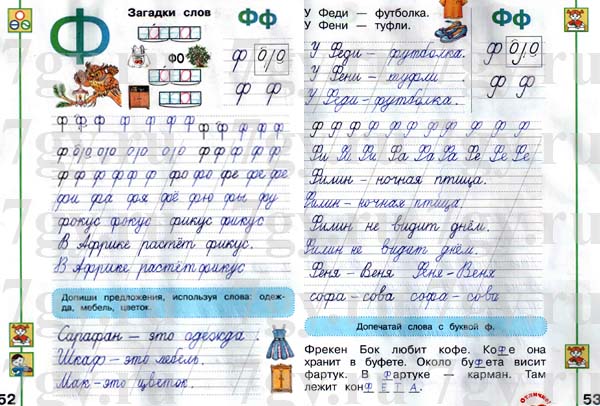 Загадки слов
Фф
Ф
ФО
ф
ф ф
ф ф ф ф ф ф ф ф ф ф ф
ф ф ф ф ф ф фа фо фе фе фе
фи фа фя фё фю фы фу
фокус фокус фикус фикус
В Африке растёт фикус.
В Африке растёт фикус
Допиши предложения, используя слова: одеж-
да, мебель, цветок.
Сарафан — это одежда.
Шкаф — это мебель.
Мак — это цветок.
52
У Феди — футболка.
У Фени — туфли.
У Феди — футболка.
У Фени — туфли.
У Феди — футболка.
ф
ф ф
ф ф ф ф ф ф ф ф ф ф ф
Фи Фи Фи Фа Фа Фа Фе Фе Фе
Филин — ночная птица.
Филин — ночная птица
Филин не видит днём.
Филин не видит днём.
Феня — Веня Феня — Веня
софа — сова софа — сова
Допечатай слова с буквой ф.
Фрекен Бок любит кофе. Кофе она
хранит в буфете. Около буфета висит
фартук. В фартуке — карман. Там
лежит конФЕТА.
отлично!
53
7gy.ru